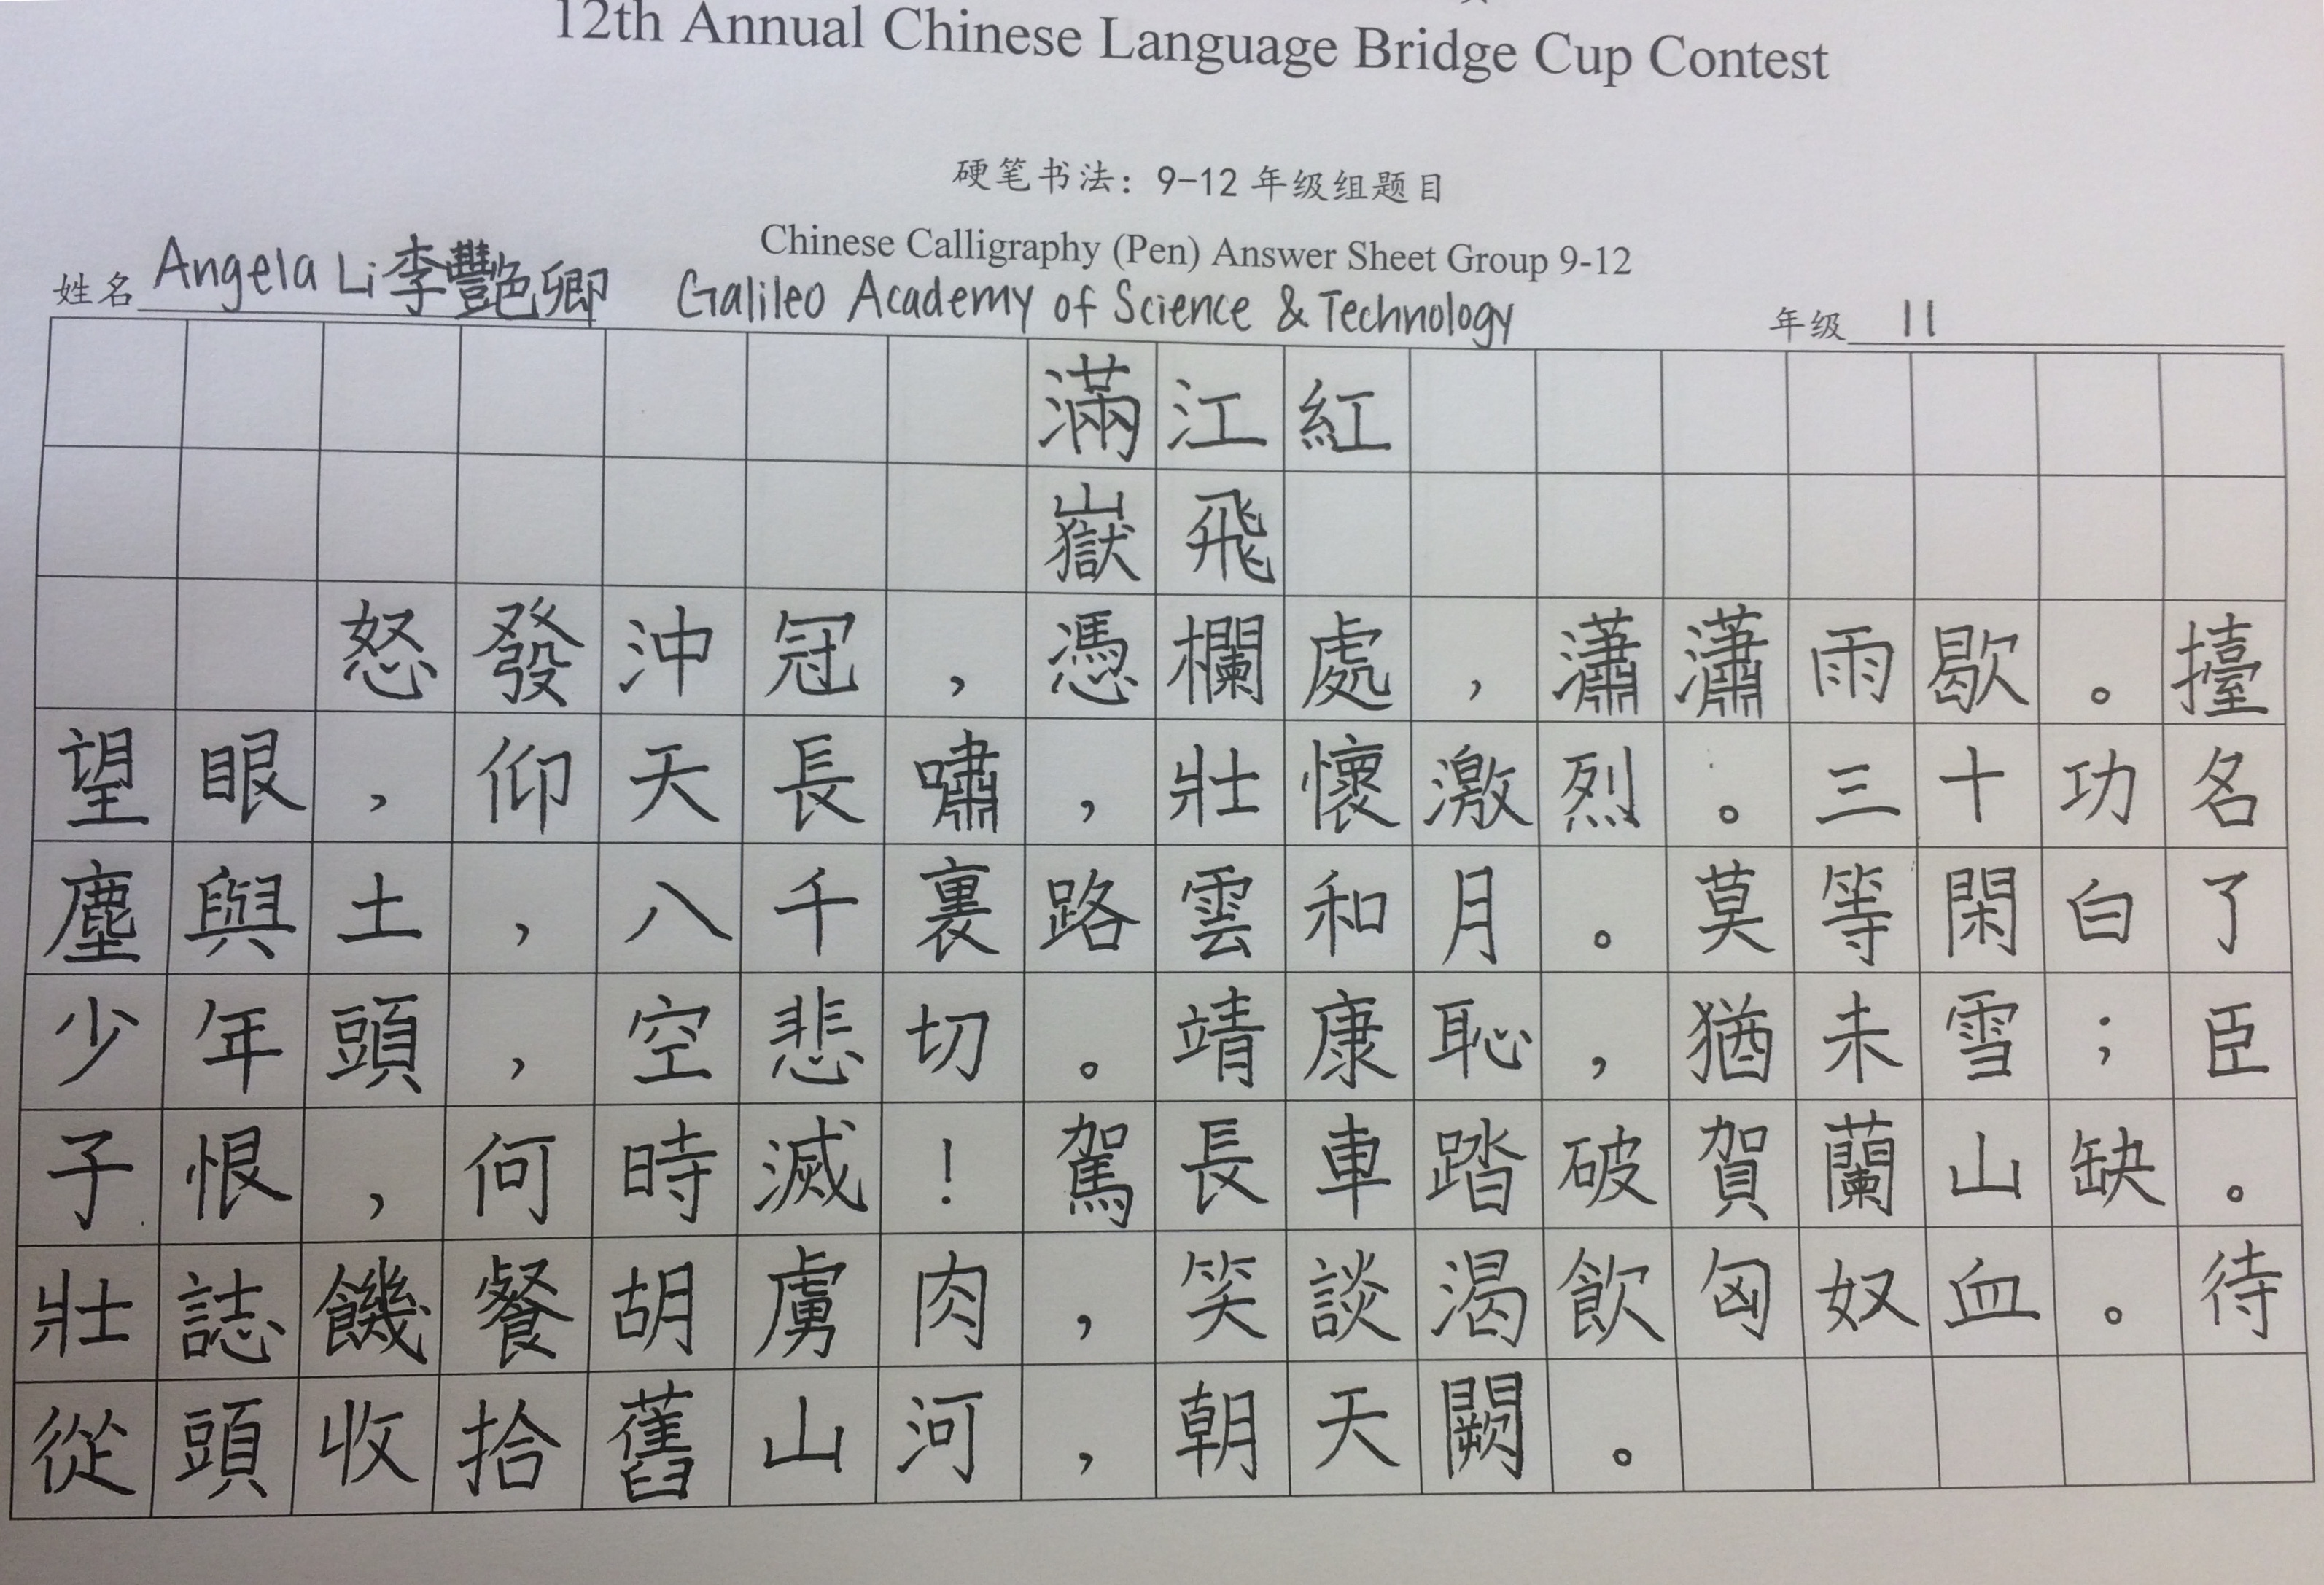 12th Annual Chinese Language Bridge Cup Contest
硬笔书法：9-12 年级组题目
Chinese Calligraphy (Pen) Answer Sheet Group 9-12
姓名 Angela Li 李豔卿 Galileo Academy of Science & Technology 年级 11
滿江紅
嶽飛
怒發沖冠，憑欄處，瀟瀟雨歇。擡
望眼，仰天長嘯，壯懷激烈。三十功名
塵與土，八千裏路雲和月。莫等閑白了
少年頭，空悲切。靖康恥，猶未雪；臣
子恨，何時滅！駕長車踏破賀蘭山缺。
壯誌饑餐胡虜肉，笑談渴飲匈奴血。待
從頭收拾舊山河，朝天闕。